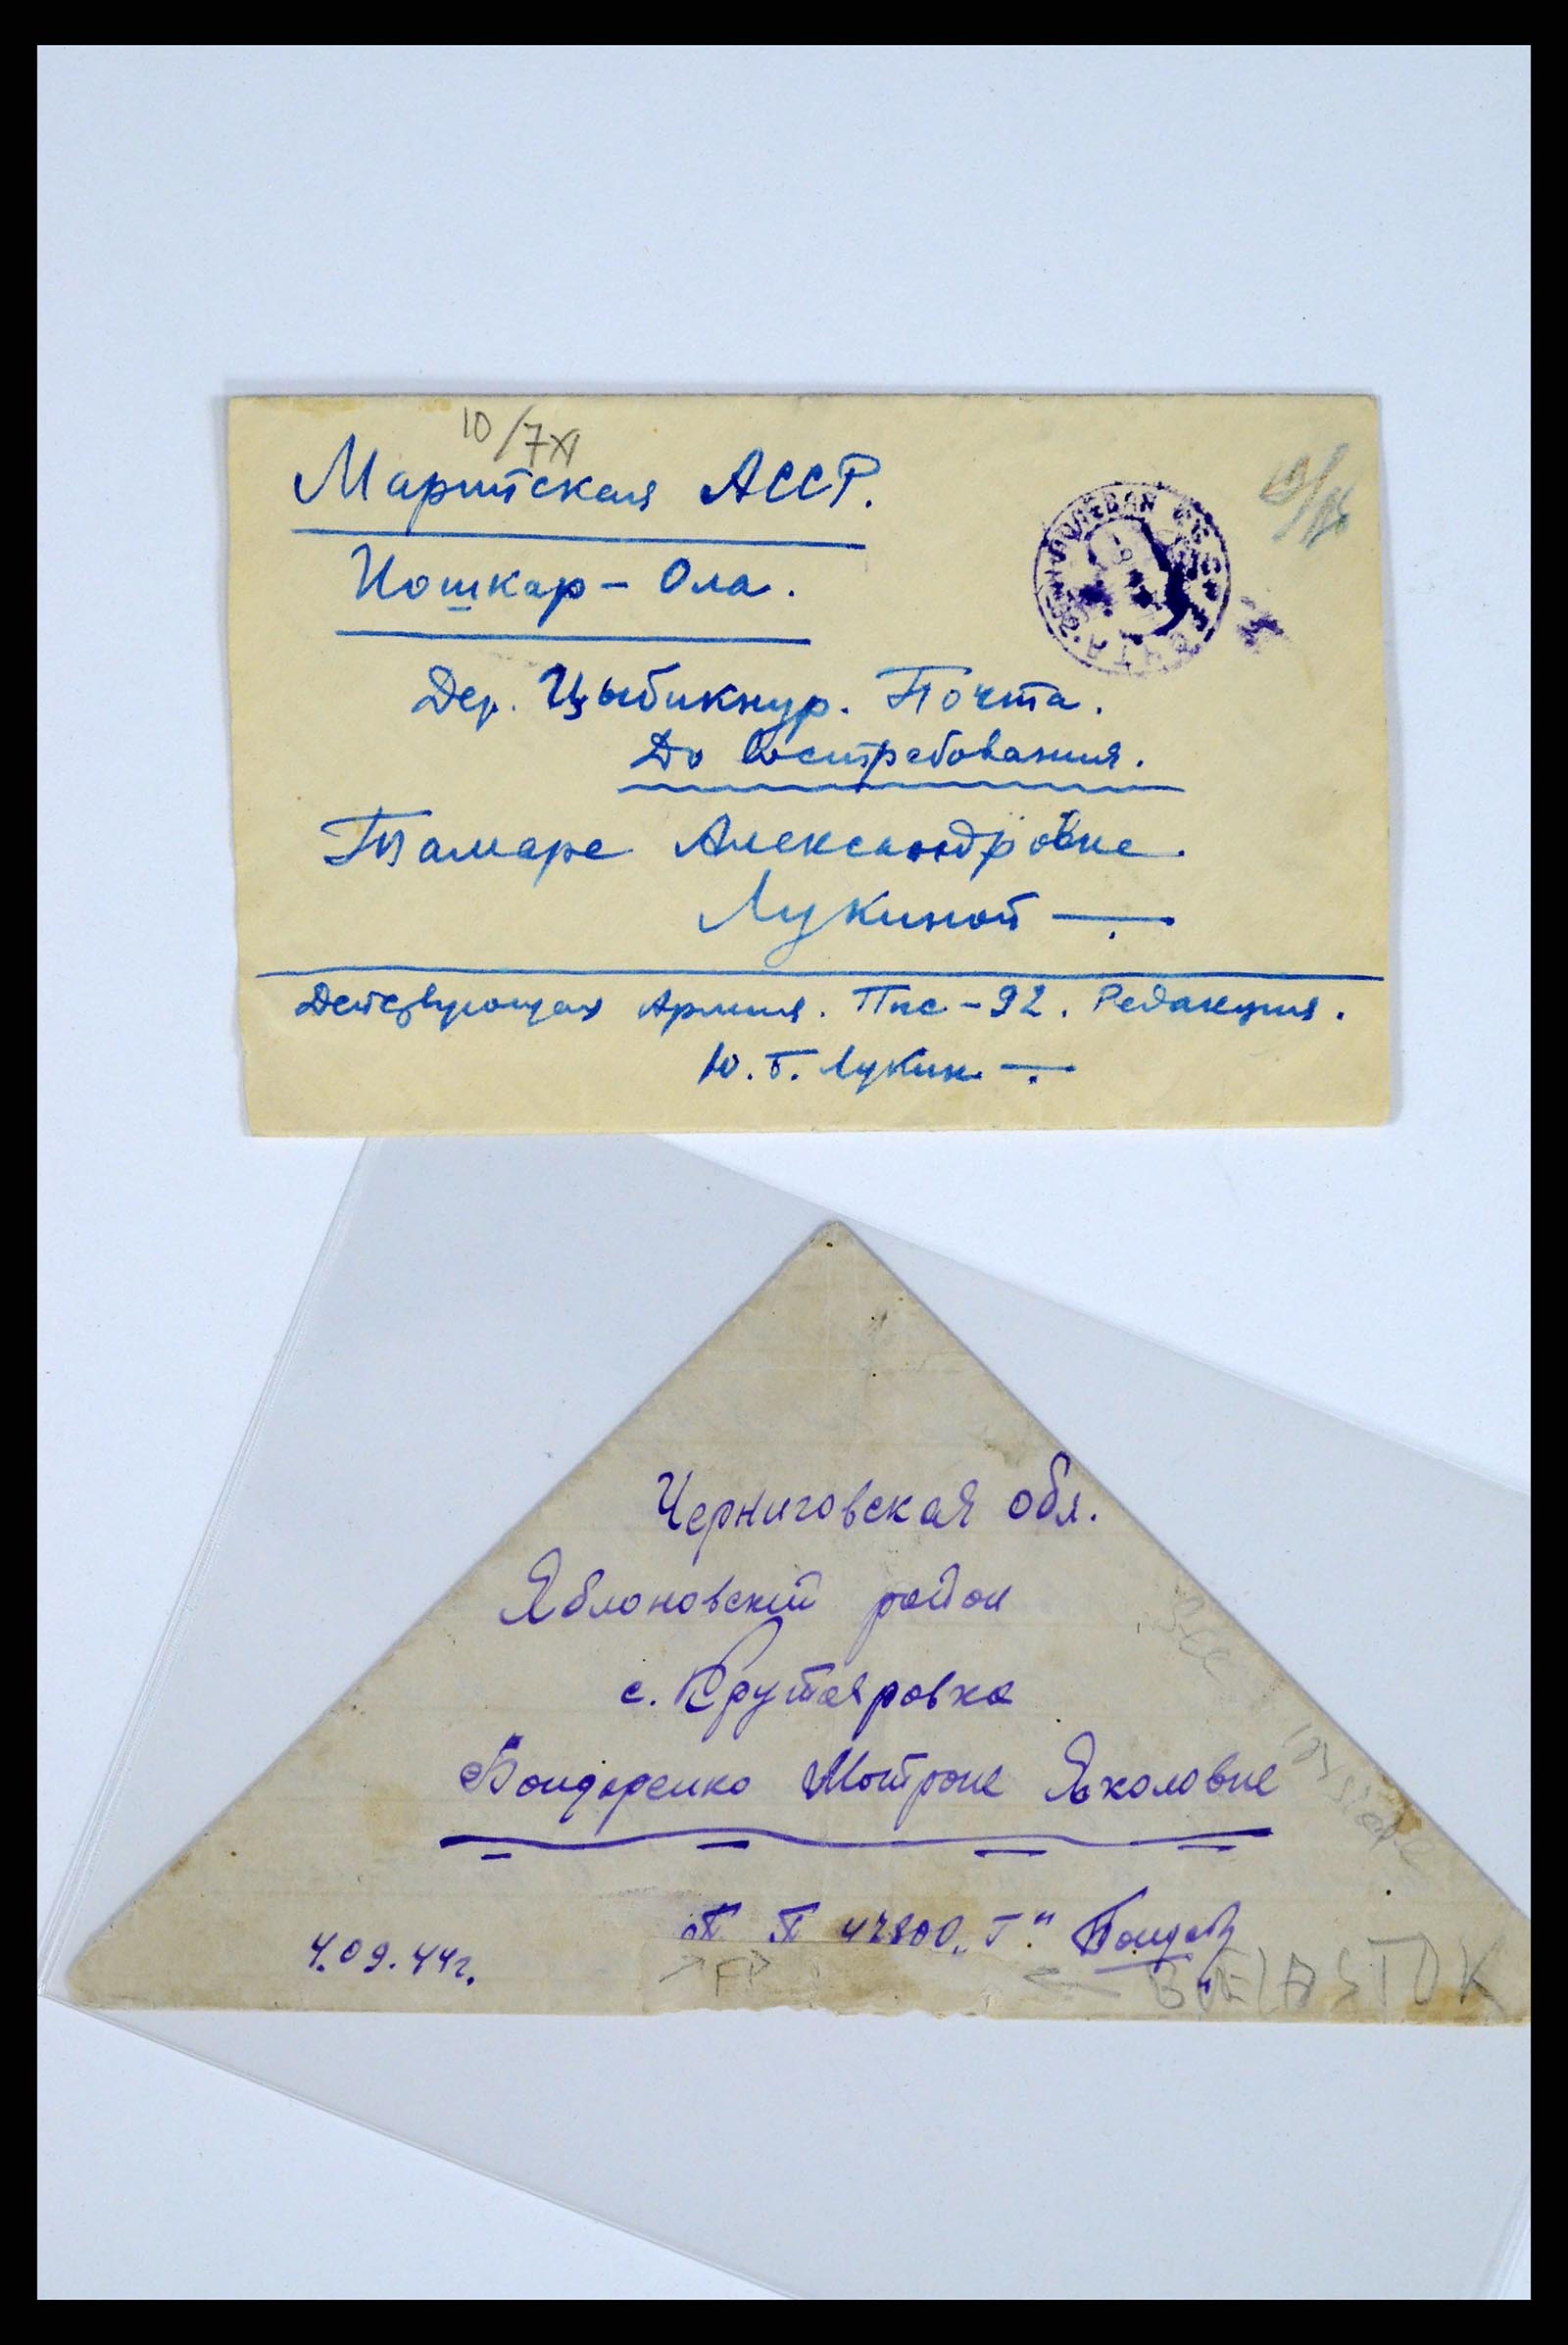 10/7XI
Марийская АССР.
Йошкар-Ола.
ПОЛЕВАЯ
ПОЧТА
Дер. Цыбикнур. Почта.
До востребования.
Тамаре Александровне
Лукиной —.
Действующая Армия. Ппс-92. Редакция.
Ю. Б. Лукин —.
Черниговская обл.
Яблоновский район
с. Крутояровка
Бондаренко Мотроне Яколовне
П П 47800 „Г“
4.09.44г.
→ FP
← BIELASTOK